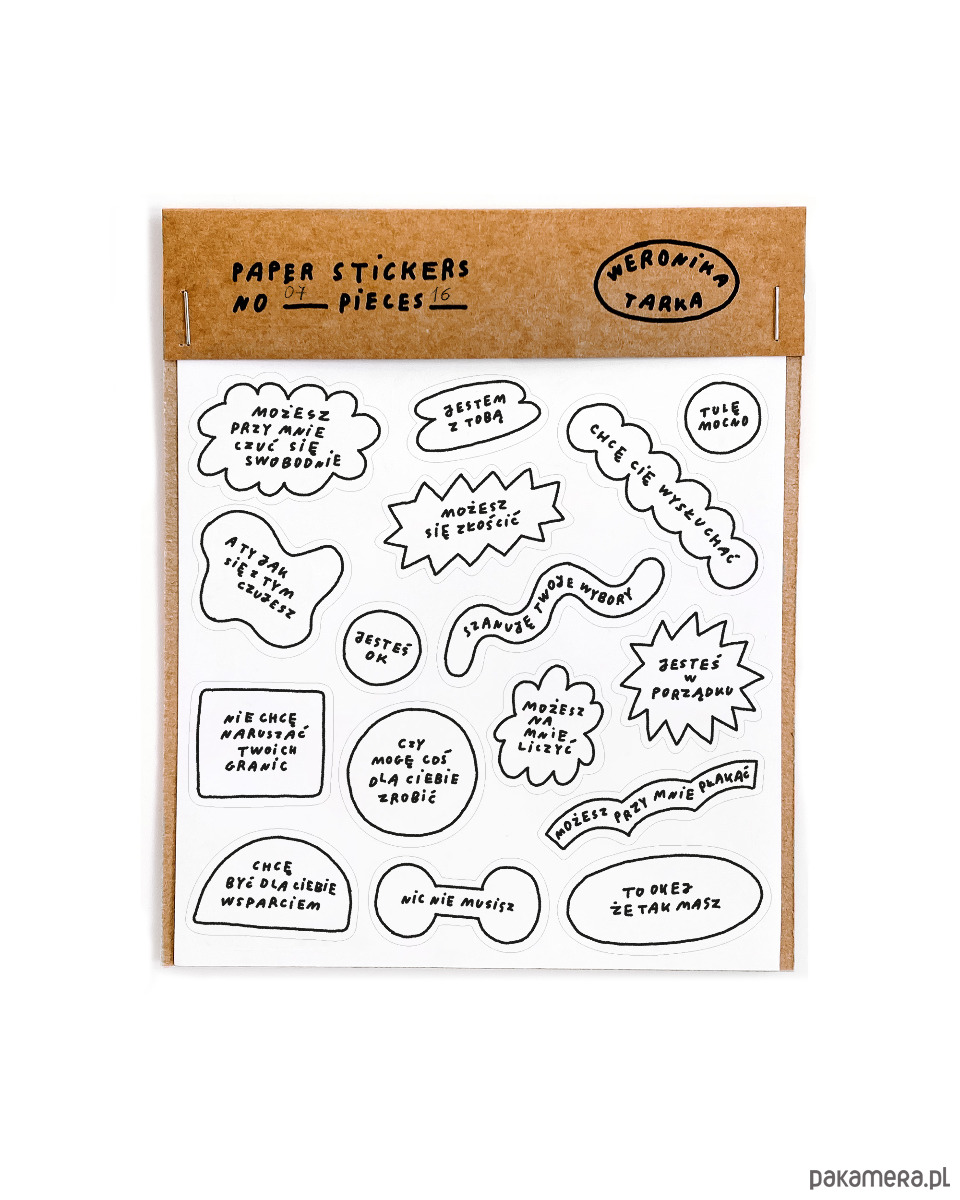 PAPER STICKERS
NO 07 PIECES 16
WERONIKA
TARKA
MOŻESZ
PRZY MNIE
CZUĆ SIĘ
SWOBODNIE
JESTEM
Z TOBĄ
TULĘ
MOCNO
CHCĘ CIĘ WYSŁUCHAĆ
MOŻESZ
SIĘ ZŁOŚCIĆ
A TY JAK
SIĘ Z TYM
CZUJESZ
SZANUJĘ TWOJE WYBORY
JESTEŚ
OK
JESTEŚ
W
PORZĄDKU
NIE CHCĘ
NARUSZAĆ
TWOICH
GRANIC
CZY
MOGĘ COŚ
DLA CIEBIE
ZROBIĆ
MOŻESZ
NA
MNIE
LICZYĆ
MOŻESZ PRZY MNIE PŁAKAĆ
CHCĘ
BYĆ DLA CIEBIE
WSPARCIEM
NIC NIE MUSISZ
TO OKEJ
ŻE TAK MASZ
pakamera.pl